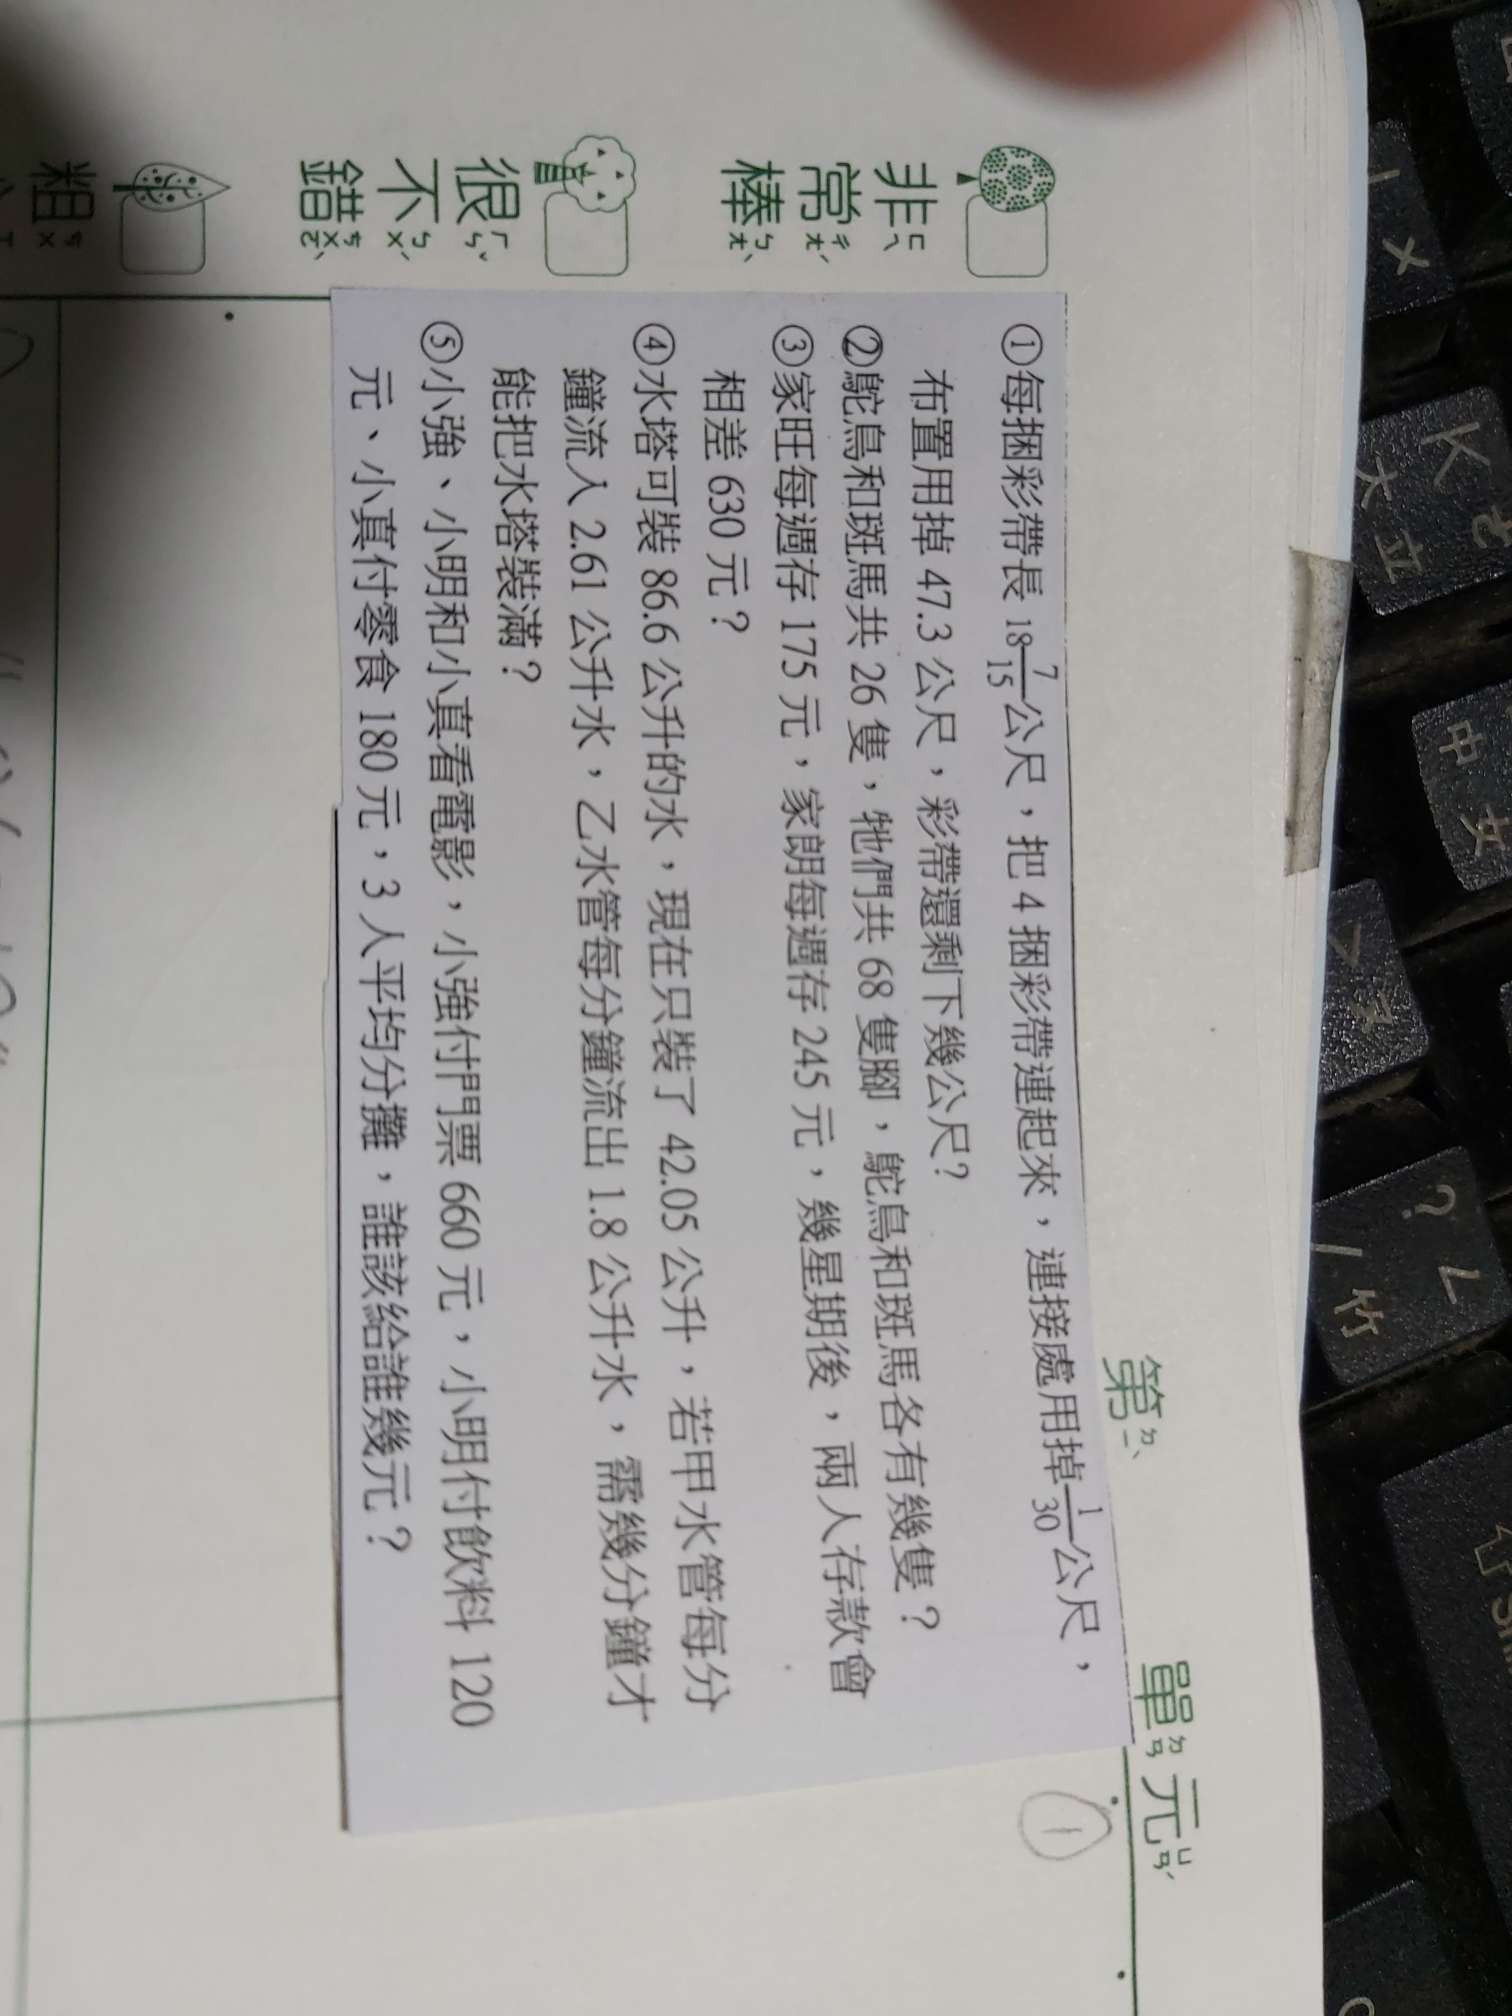 第 單元
ㄉㄧˋ ㄉㄢ ㄩㄢˊ
非常棒
ㄈㄟ ㄔㄤˊ ㄅㄤˋ
很不錯
ㄏㄣˇ ㄅㄨˊ ㄘㄨㄛˋ
粗
ㄘㄨ
①每捆彩帶長 18 7/15 公尺，把 4 捆彩帶連起來，連接處用掉 1/30 公尺，
布置用掉 47.3 公尺，彩帶還剩下幾公尺?
②鴕鳥和斑馬共 26 隻，牠們共 68 隻腳，鴕鳥和斑馬各有幾隻？
③家旺每週存 175 元，家朗每週存 245 元，幾星期後，兩人存款會
相差 630 元？
④水塔可裝 86.6 公升的水，現在只裝了 42.05 公升，若甲水管每分
鐘流入 2.61 公升水，乙水管每分鐘流出 1.8 公升水，需幾分鐘才
能把水塔裝滿？
⑤小強、小明和小真看電影，小強付門票 660 元，小明付飲料 120
元、小真付零食 180 元，3 人平均分攤，誰該給誰幾元？
①
K ㄜ 大
中 女
ㄡ
? ㄥ
/ 竹